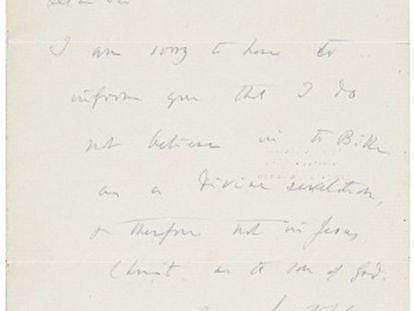 Dear Sir
I am sorry to have to
inform you that I do
not believe in the Bible
as a divine revelation,
& therefore not in Jesus
Christ as the son of God.